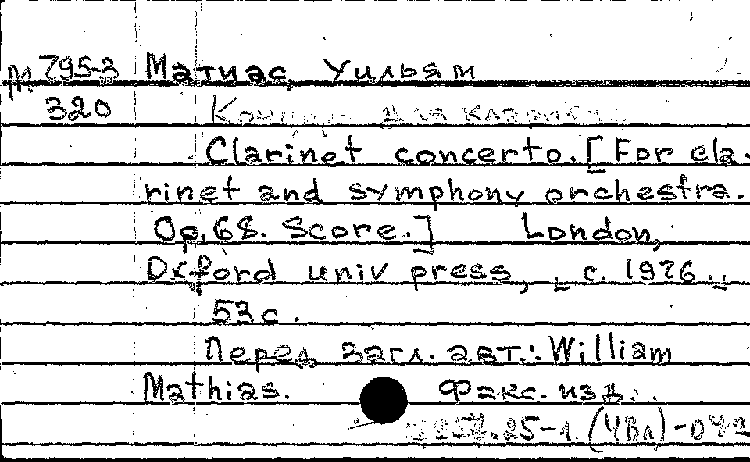 М 795-3 Матиас, Уильям
320 для
Clarinet concerto. [For cla-
rinet and symphony orchestra.
Op. 68. Score.] London,
Oxford univ press, [c. 1976].
53 с.
Перед загл. авт.: William
Mathias. Факс. изд.